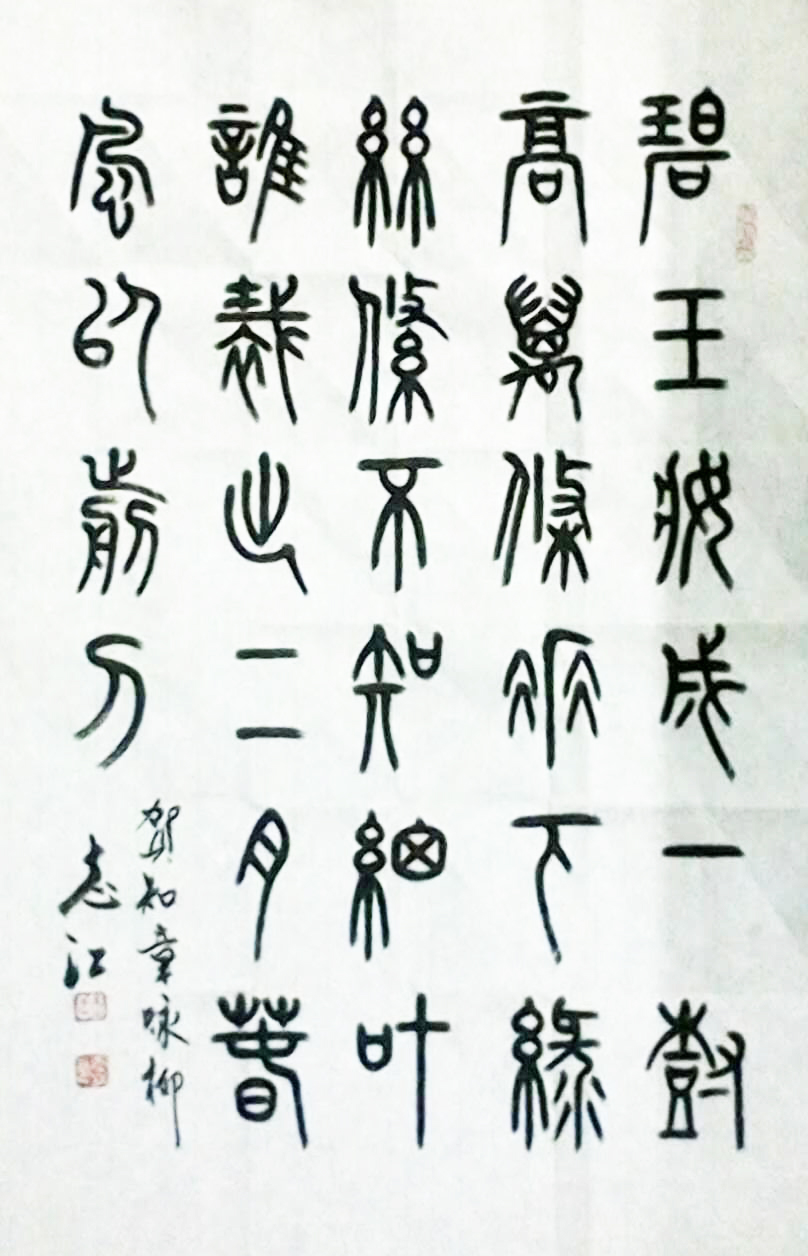 碧玉妝成一樹
高萬條垂下綠
絲絛不知細叶
誰裁出二月春
風似前刀
賀知章咏柳
志江